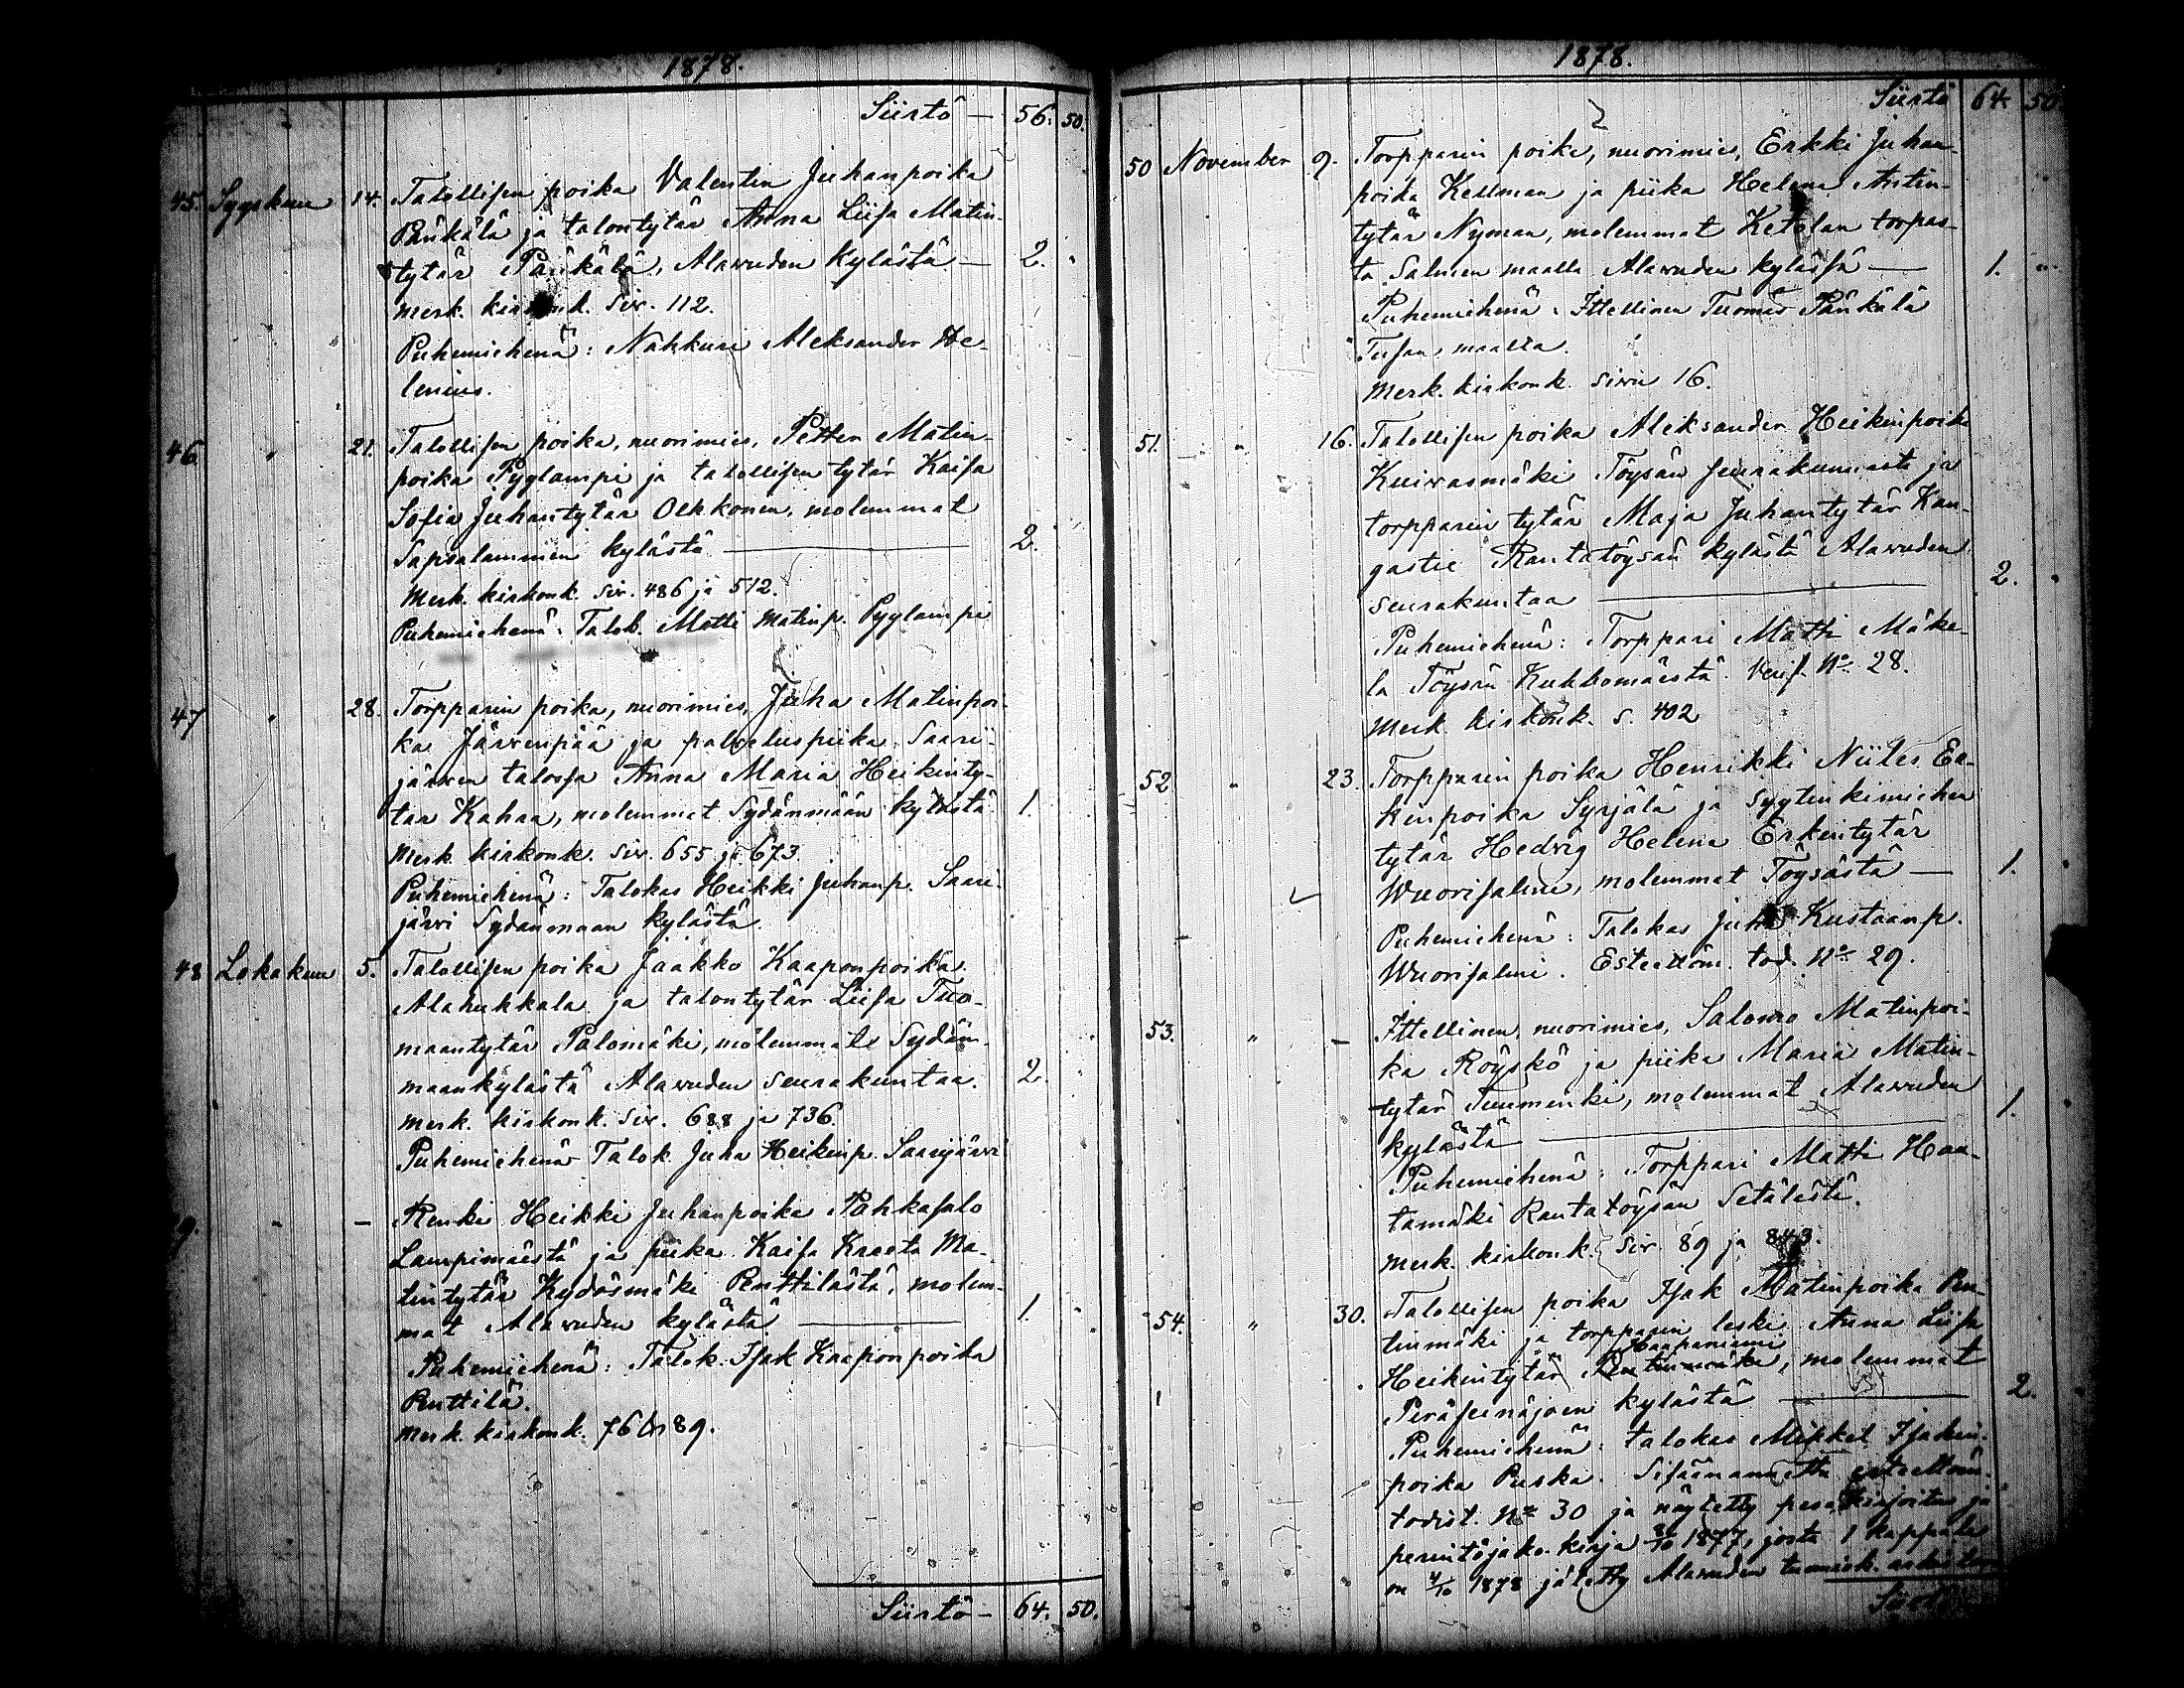 1878.
Siirtö — 56. 50.
45. Syyskuu 14. Talollisen poika Valentin Juhanpoika
Pänkälä ja talontytär Anna Liisa Matin-
tytär Pänkälä, Alavuden kylästä — 2. "
Merk. kirkonk. siv. 112.
Puhemiehenä: Nahkuri Aleksander He-
lenius.
46 " 21. Talollisen poika, nuorimies, Petter Matin-
poika Pyylampi ja talollisen tytär Kaisa
Sofia Juhantytär Oukkonen, molemmat
Sapsalammin kylästä — 2.
Merk. kirkonk. siv. 486 ja 512.
Puhemiehenä: Talok. Matti Matinp. Pyylampi
47 " 28. Torpparin poika, nuorimies, Juha Matinpoi-
ka Järvenpää ja palveluspiika Saari-
järven talossa Anna Maria Heikinty-
tär Kahra, molemmat Sydänmään kylästä 1.
Merk. kirkonk. siv. 655 ja 673.
Puhemiehenä: Talokas Heikki Juhanp. Saari-
järvi Sydänmaan kylästä.
48 Lokakuu 5. Talollisen poika Jaakko Kaaponpoika
Alahukkala ja talontytär Liisa Tuo-
maantytär Palomäki, molemmat Sydän-
maankylästä Alavuden seurakuntaa. 2.
Merk. kirkonk. siv. 688 ja 736.
Puhemiehenä Talok. Juha Heikinp. Saarijärvi
9. " — Renki Heikki Juhanpoika Pahkasalo
Lampimäestä ja piika Kaisa Kreeta Ma-
tintytär Kydösmäki Penttilästä, molem-
mat Alavuden kylästä — 1.
Puhemiehenä: Talok. Isak Kaaponpoika
Penttilä.
Merk. kirkonk. 76 89.
Siirtö — 64. 50.
1878.
Siirtö 64. 50
50 November 9. Torpparin poika, nuorimies, Erkki Juhan-
poika Kellman ja piika Helena Antin-
tytär Nyman, molemmat Ketolan torpas-
ta Salmen maalla Alavuden kylässä — 1. "
Puhemiehenä: Ittellinen Tuomas Pänkälä
maalla.
Merk. kirkonk. sivu 16.
51. " 16. Talollisen poika Aleksander Heikinpoika
Kuivasmäki Töysän seurakunnasta ja
torpparin tytär Maja Juhantytär Kan-
gastie Rantatöysän kylästä Alavuden
seurakuntaa — 2.
Puhemiehenä: Torppari Matti Mäke-
lä Töysän Kukkomäestä. Verif. No. 28.
Merk. kirkonk. s. 402
52 " 23. Torpparin poika Henrikki Niiles Er-
kinpoika Syrjälä ja syytinkimiehen
tytär Hedvig Helena Erkintytär
Wuorisalmi, molemmat Töysästä — 1.
Puhemiehenä: Talokas Juha Kustaanp.
Wuorisalmi. Esteettöm. tod. No. 29.
53. " — Ittellinen, nuorimies, Salomo Matinpoi-
ka Röyskö ja piika Maria Matin-
tytär Tuumenki, molemmat Alavuden
kylästä — 1.
Puhemiehenä: Torppari Matti Haa-
tamäki Rantatöysän Setälästä.
Merk. kirkonk. siv. 89 ja 843.
54. " 30. Talollisen poika Isak Matinpoika Pen-
tinmäki ja torpparin leski Anna Liisa
Haapaniemi
Heikintytär Pentinmäki, molemmat
Peräseinäjoen kylästä — 2.
Puhemiehenä: talokas Mikkel Isakin-
poika Puska. Sisäänannettu esteettöm.
todist. No 30 ja näytetty pesäkirjoitus ja
perintöjako-kirja 1877, josta 1 kappale
on 4/10 1878 jätetty Alavuden tuomiok.